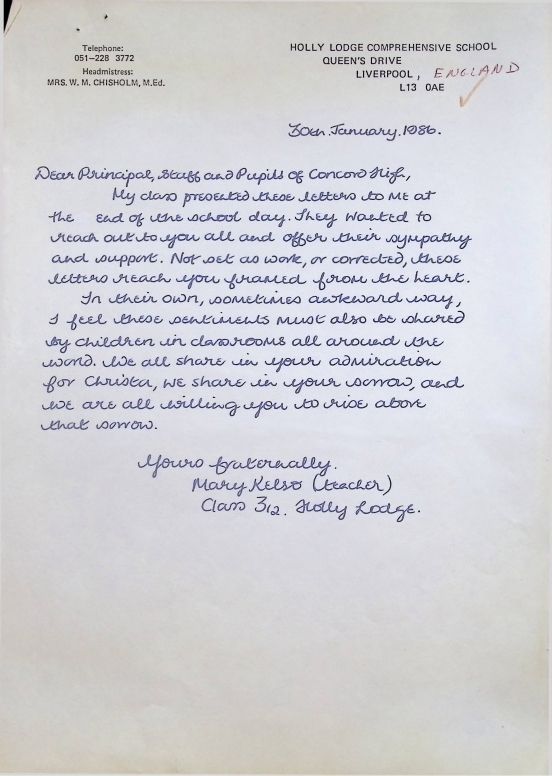 Telephone:
051-228 3772
Headmistress:
MRS. W. M. CHISHOLM, M.Ed.
HOLLY LODGE COMPREHENSIVE SCHOOL
QUEEN'S DRIVE
LIVERPOOL, ENGLAND
L13 0AE
30th. January. 1986.
Dear Principal, Staff and Pupils of Concord High,
My class presented these letters to me at
the end of the school day. They wanted to
reach out to you all and offer their sympathy
and support. Not set as work, or corrected, these
letters reach you framed from the heart.
In their own, sometimes awkward way,
I feel these sentiments must also be shared
by children in classrooms all around the
world. We all share in your admiration
for Christa, we share in your sorrow, and
we are all willing you to rise above
that sorrow.
Yours fraternally.
Mary Kelso (teacher)
Class 3/2. Holly Lodge.